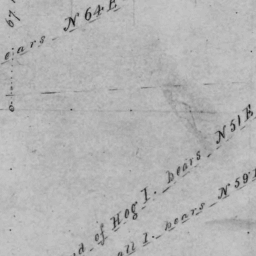 ears N 64 E
67
of Hog I. bears N 51 E
I. bears N 59